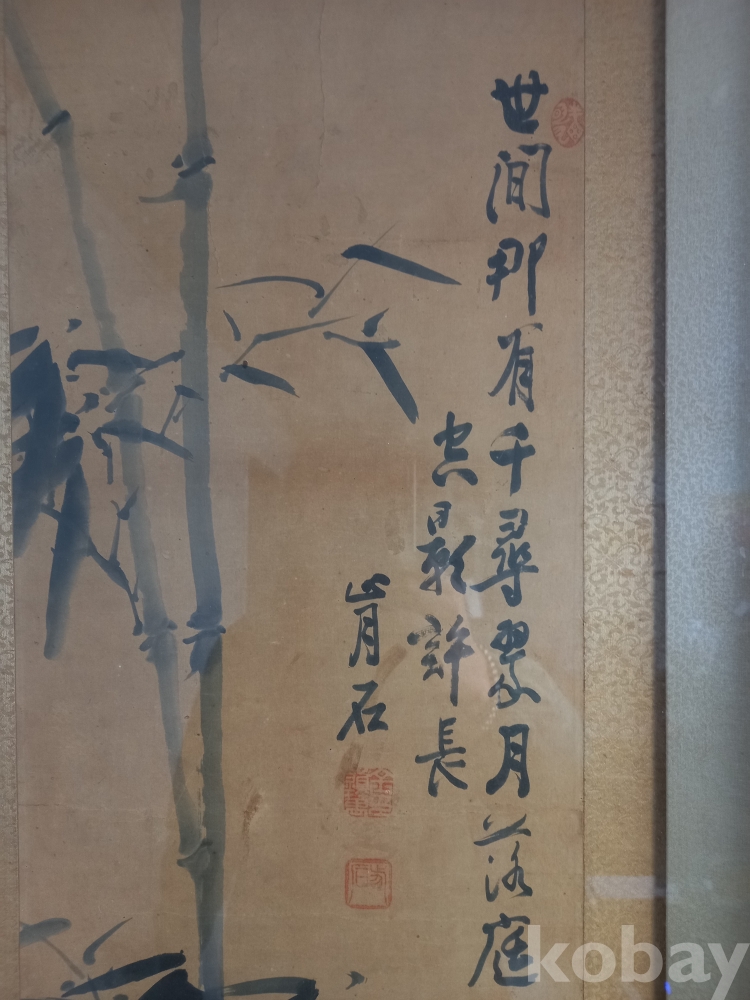 世間那有千尋翠月落庭
空影許長
肯石
kobay